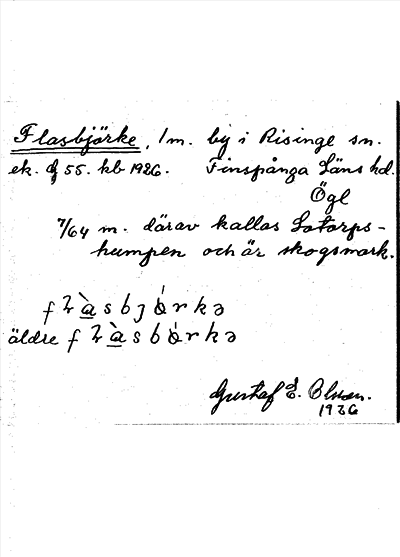 Flasbjörke, 1 m. by i Risinge sn.
ek. 55. kb 1926. Finspånga Läns hd.
Ögl
7/64 m. därav kallas Lotorps-
humpen och är skogsmark.
äldre
Gustaf E. Olsson.
1926